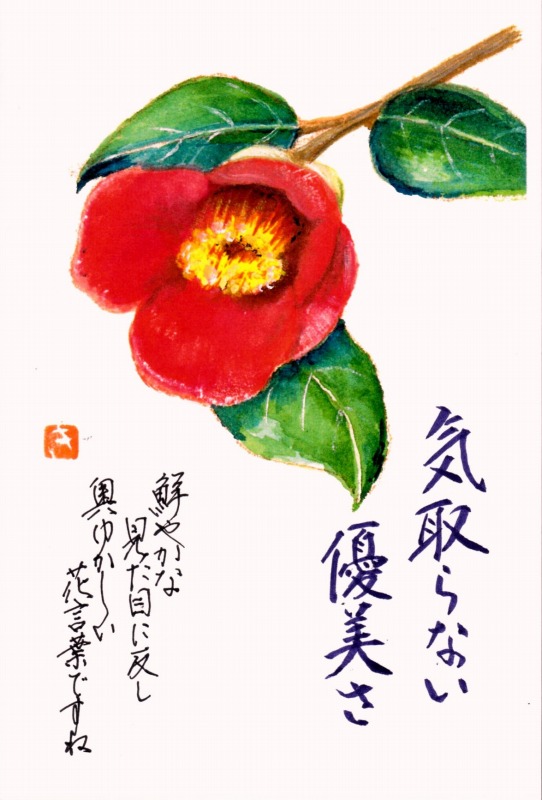 気取らない
優美さ
鮮やかな
見た目に反し
奥ゆかしい
花言葉ですね